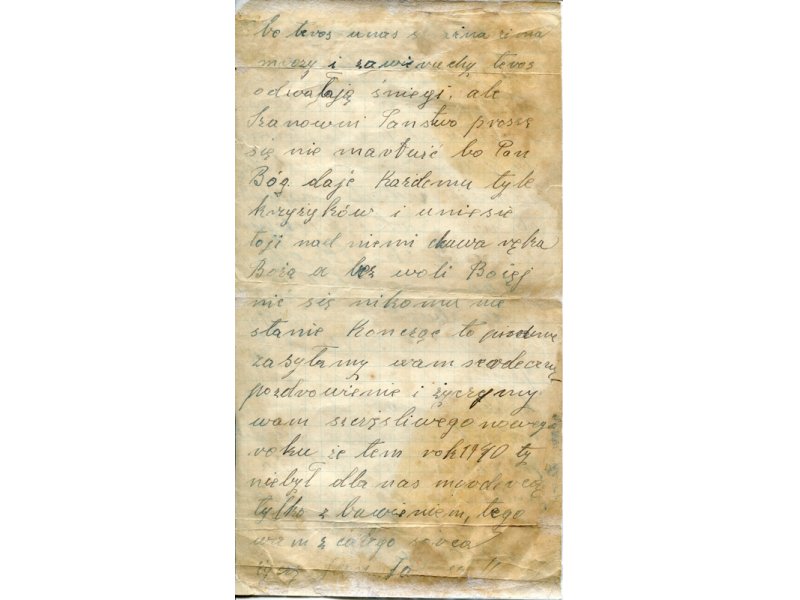 bo teros unas zima
mrozy i zawieruchy teros
odwałają śniegi, ale
Szanowni Państwo proszę
się nie martwić bo Pan
Bóg daje Każdemu tyle
krzyżyków i uniesie
toji nad niemi ręka
Boża a bez woli Bożęj
nić się nikomu nie
stanie Kończąc to
zasyłamy wam
pozdrowienie i życzymy
wam szczęśliwego nowego
roku że tem rok 1940
niebył dla nas
tylko zbawieniem, tego
wam z całego serca